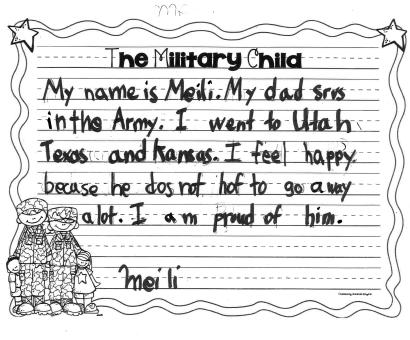 The Military Child
My name is Meili. My dad srvs
in the Army. I went to Utah
Texas and Kansas. I feel happy
becase he dos not hof to go away
alot. I am proud of him.
Meili